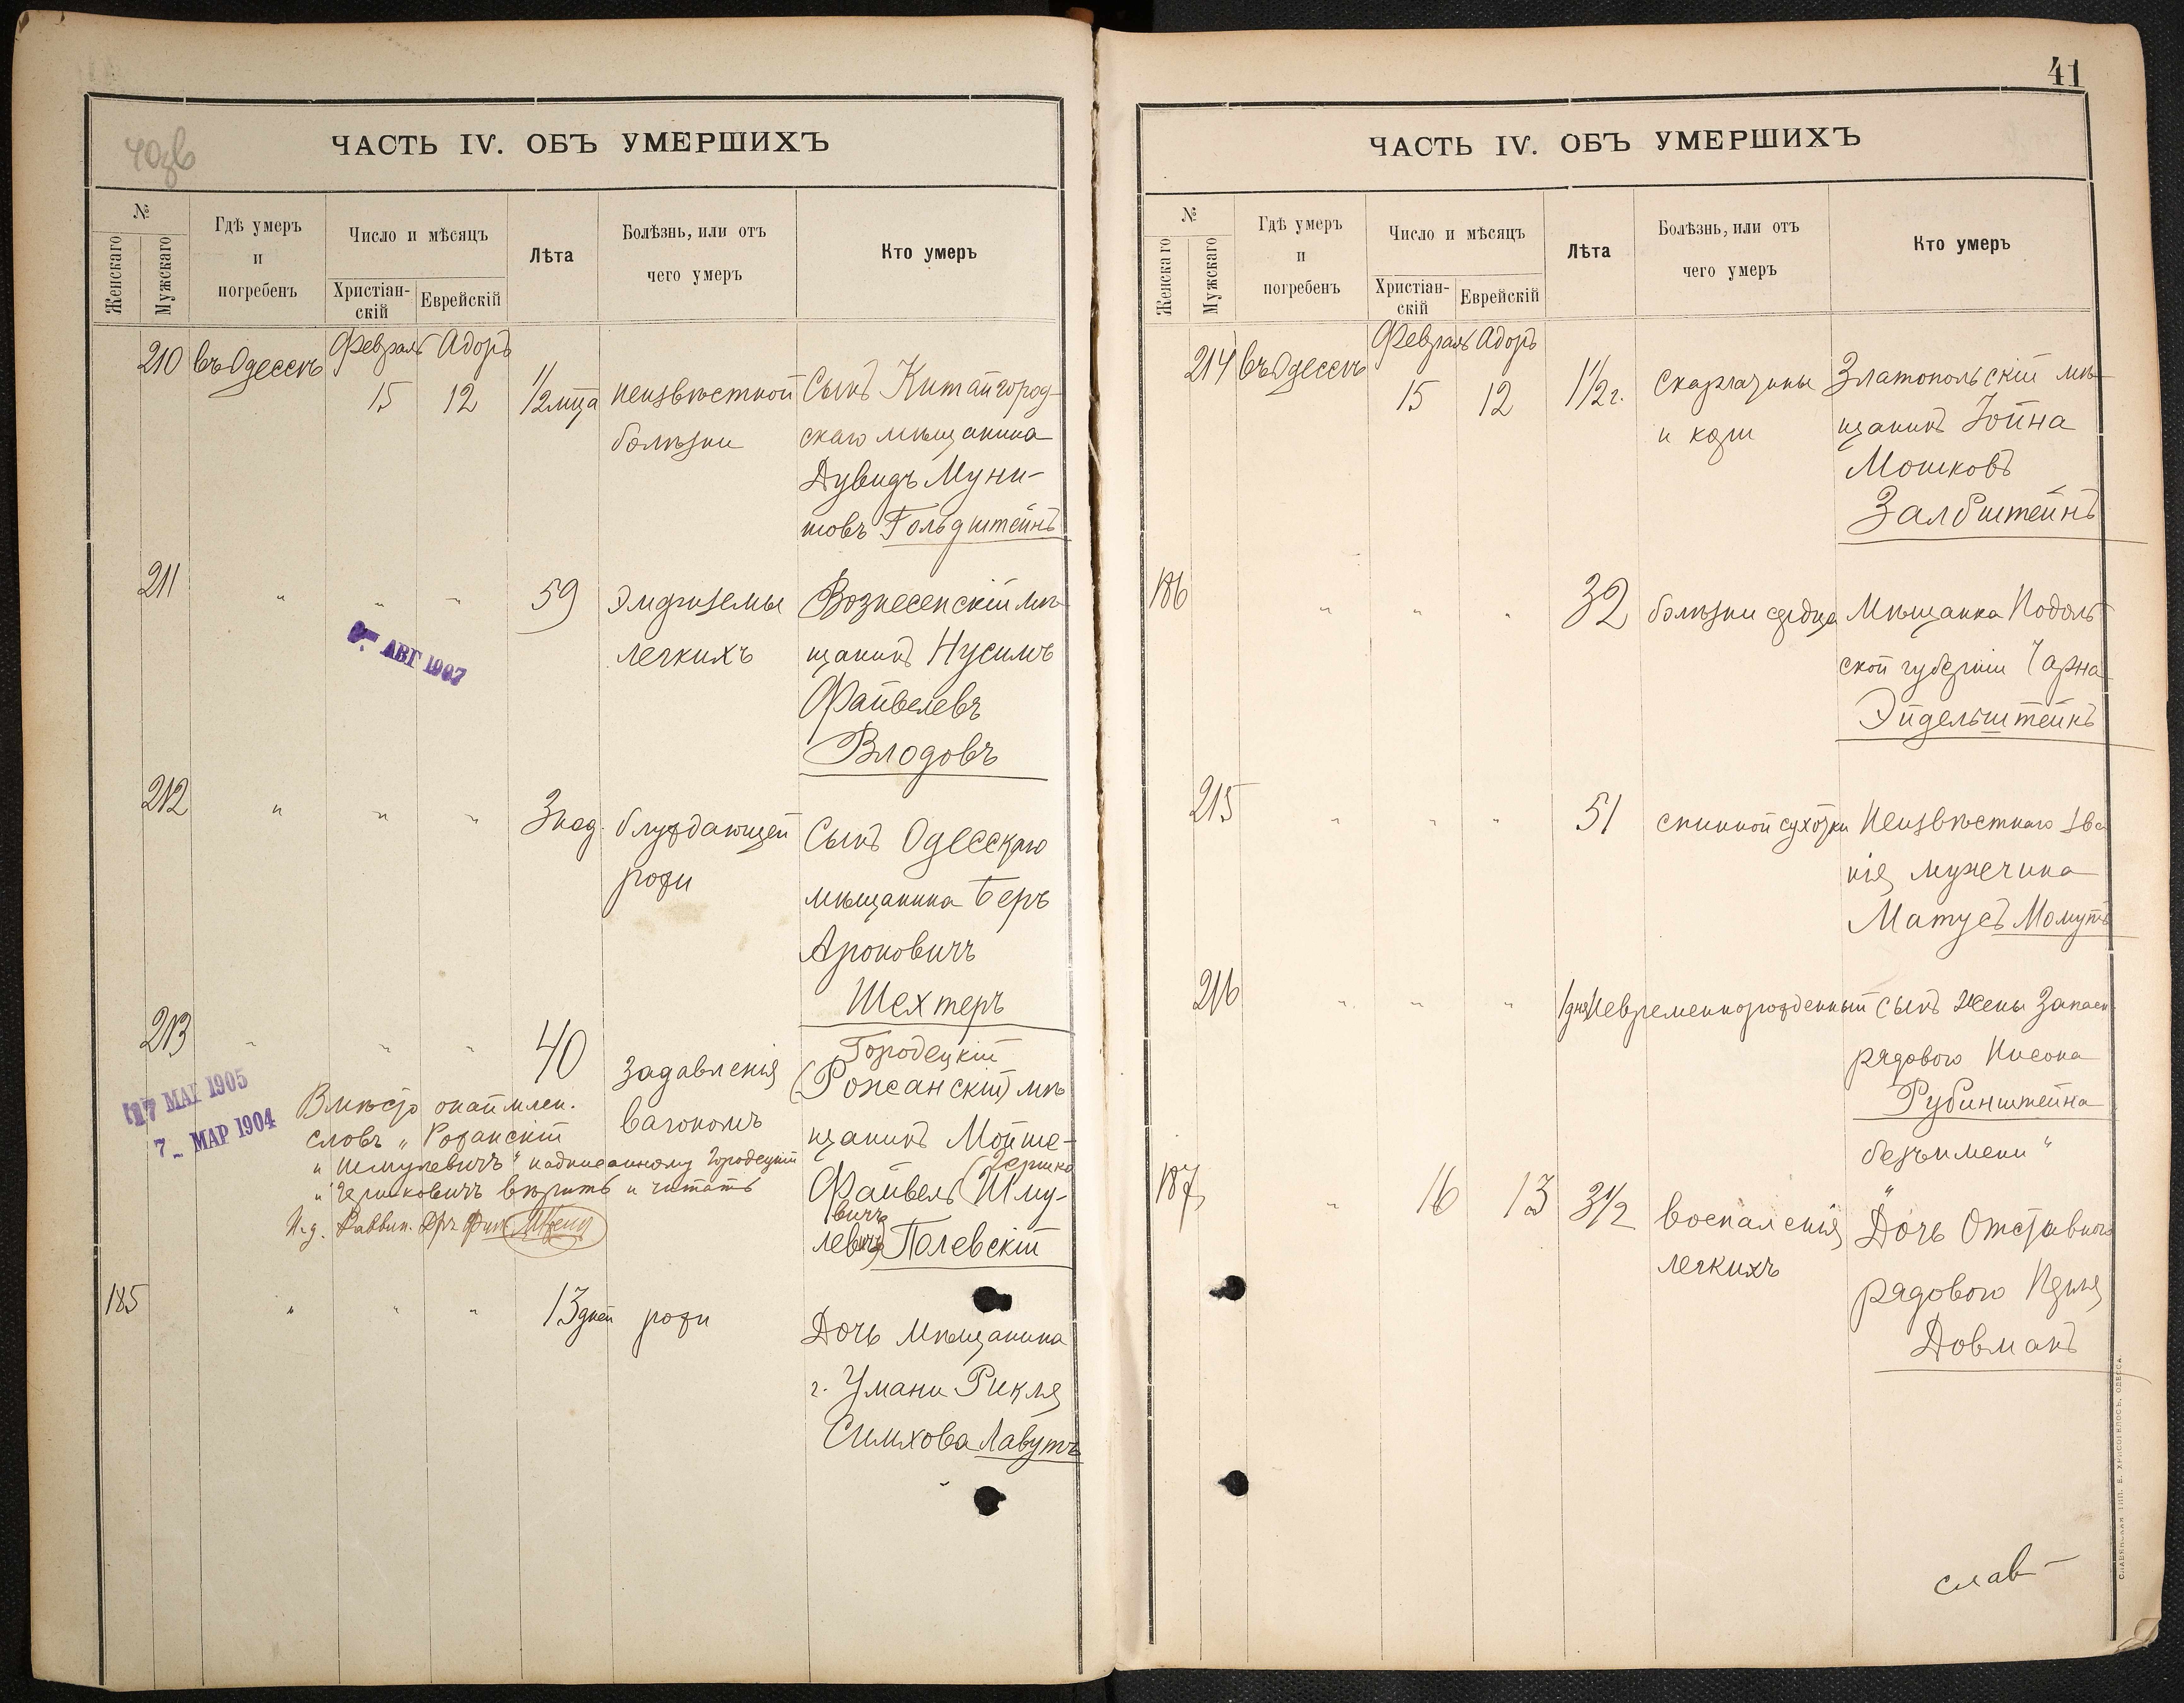 40об
ЧАСТЬ IV. ОБЪ УМЕРШИХЪ
№
Женскаго
Мужскаго
Гдѣ умеръ
и
погребенъ
Число и мѣсяцъ
Христіан-
скій
Еврейскій
Лѣта
Болѣзнь, или отъ
чего умеръ
Кто умеръ
210 въ Одессѣ Февраль Адоръ
15 12 1/2 мца неизвѣстной Сынъ Китайгород-
болѣзни скаго мѣщанина
Дувидъ Муни-
шовъ Гольдштейнъ
211 " " " 59 Эмфиземы Вознесенскій мѣ-
легкихъ щанинъ Нусимъ
Файвелевъ
Влодовъ
7 АВГ 1907
212 " " " 3 нед. блуждающей Сынъ Одесскаго
рожи мѣщанина Беръ
Ароновичъ
Шехтеръ
213 " " " 40 задавленія Городецкій
(Рожанскій) мѣ-
вагономъ щанинъ Мойше-
Гершко
Файвель (Шму-
вичъ
левичъ) Полевскій
17 МАЯ 1905
7 МАР 1904
Вмѣсто окаймлен.
словъ „Рожанскій
и Шмулевичъ" надписанному Городецкій
и Гершковичъ вѣрить и читать
И.д. Раввин.
185 " " " 13 дней рожи Дочь мѣщанина
г. Умани Рикля
Симхова Лавутъ
41
ЧАСТЬ IV. ОБЪ УМЕРШИХЪ
№
Женскаго
Мужскаго
Гдѣ умеръ
и
погребенъ
Число и мѣсяцъ
Христіан-
скій
Еврейскій
Лѣта
Болѣзнь, или отъ
чего умеръ
Кто умеръ
214 въ Одессѣ Февраль Адоръ
15 12 1 1/2 г. Скарлатины Златопольскій мѣ-
и кори щанинъ Іойна
Мошковъ
Залбштейнъ
186 " " " 32 болѣзни сердца Мѣщанка Подоль-
ской губерніи Чарна
Эйдельштейнъ
215 " " " 51 спинной сухотки Неизвѣстнаго зва-
нія мужчина
Матусъ Момутъ
216 " " " 1 дня Невременнорожденный Сынъ жены Запасн.
рядового Нисона
Рубинштейна
безъ имени"
187 " 16 13 3 1/2 Воспаленія Дочь Отставного
легкихъ рядового Перля
Довманъ
слав-
СЛАВЯНСКАЯ ТИП. Е. ХРИСОГЕЛОСЪ, ОДЕССА.